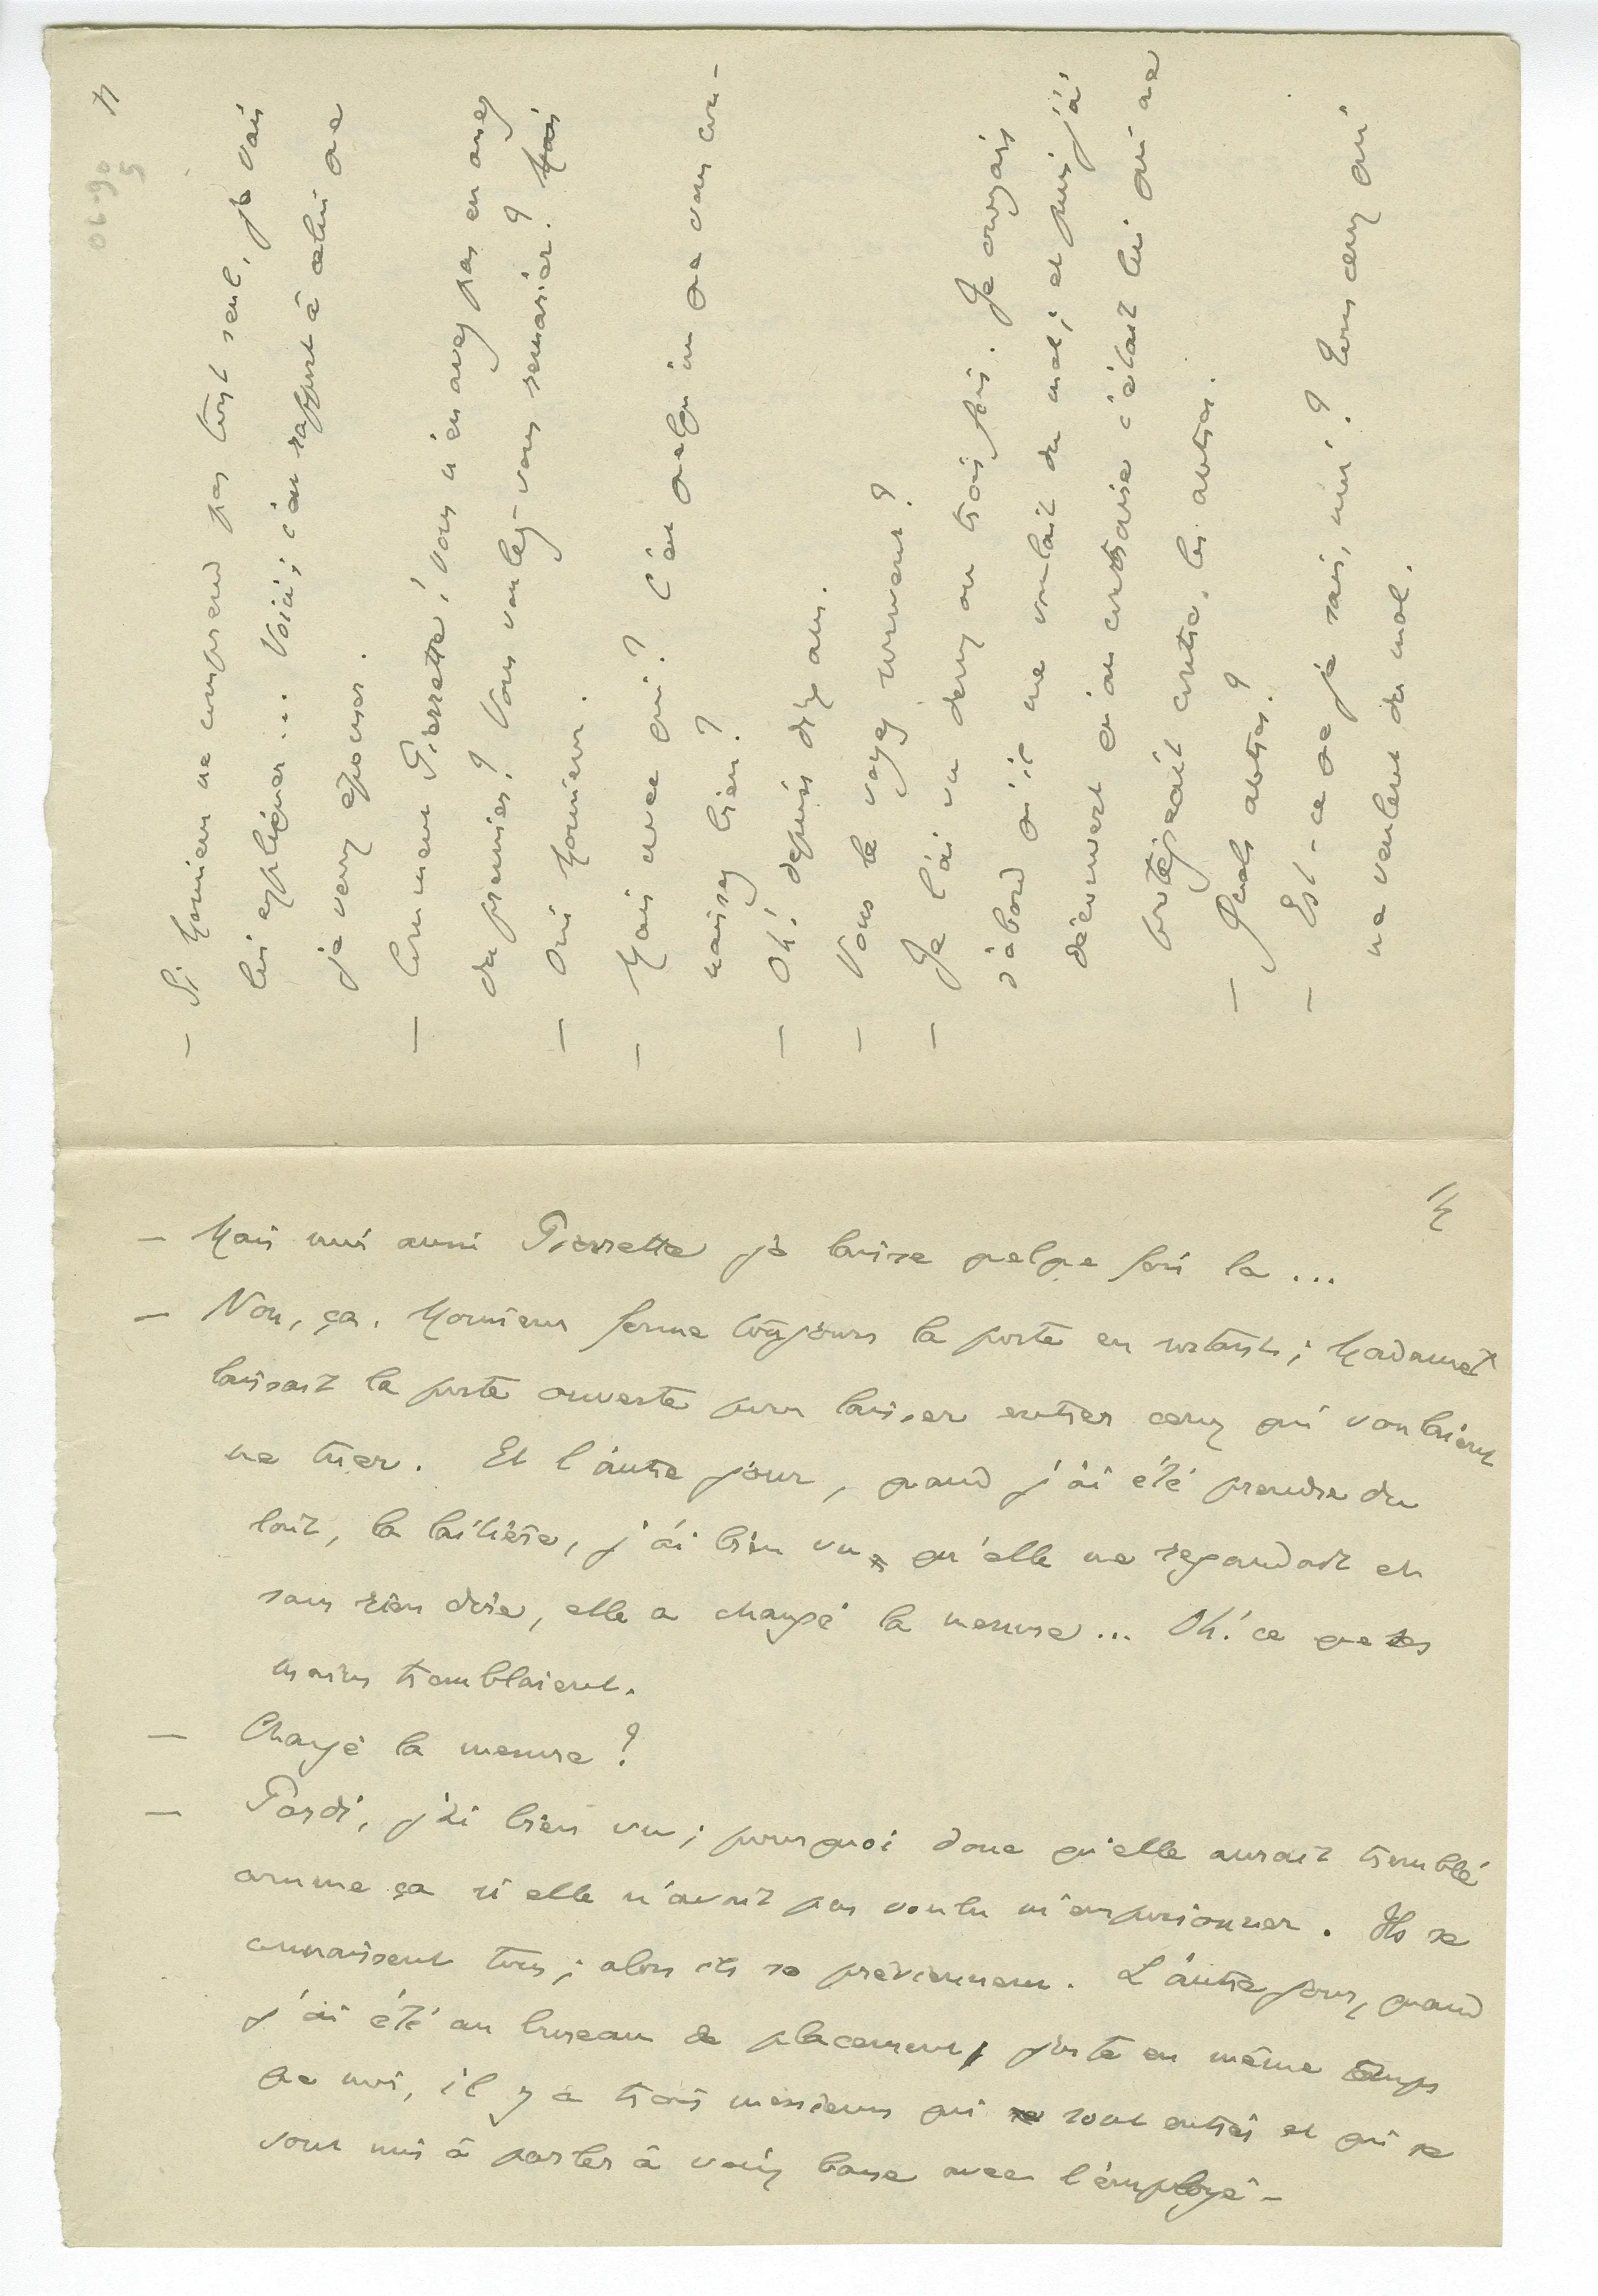 4
06-90
5
– Si Monsieur ne comprend pas tout seul, je vais
lui expliquer... Voici; c'est rapport à celui que
je veux épouser.
– Comment Pierrette! vous n'en avez pas eu assez
du premier? Vous voulez-vous remarier? Mais
– Oui Monsieur.
– Mais avec qui? C'est quelqu'un que vous con-
naissez bien?
– Oh! depuis dix ans.
– Vous le voyez souvent?
– Je l'ai vu deux ou trois fois. Je croyais
d'abord qu'il me voulait du mal; et puis j'ai
découvert qu'au contraire c'était lui qui me
protégeait contre les autres.
– Quels autres?
– Est-ce que je sais, moi? Tous ceux qui
me veulent du mal.
– Mais moi aussi Pierrette je laisse quelque fois la...
– Non, ça. Monsieur ferme toujours la porte en sortant; Madame
laissait la porte ouverte pour laisser entrer ceux qui voulaient
me tuer. Et l'autre jour, quand j'ai été prendre du
lait, la laitière, j'ai bien vu qu'elle me regardait et
sans rien dire, elle a changé la mesure... Oh! ce que ses
mains tremblaient.
– Changé la mesure?
– Pardi, j'ai bien vu; pourquoi donc qu'elle aurait tremblé
comme ça si elle n'avait pas voulu m'empoisonner. Ils se
connaissent tous; alors ils se préviennent. L'autre jour, quand
j'ai été au bureau de placement, juste en même temps
que moi, il y a trois messieurs qui sont entrés et qui se
sont mis à parler à voix basse avec l'employé-